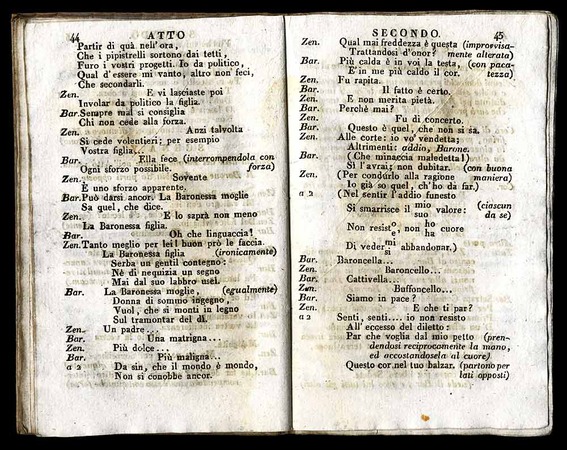 44 ATTO
Partir di quà nell'ora,
Che i pipistrelli sortono dai tetti,
Furo i vostri progetti. Io da politico,
Qual d'essere mi vanto, altro non feci,
Che secondarli.
Zen. E vi lasciaste poi
Involar da politico la figlia.
Bar. Sempre mal si consiglia
Chi non cede alla forza.
Zen. Anzi talvolta
Si cede volentieri; per esempio
Vostra figlia...
Bar. Ella fece (interrompendola con
Ogni sforzo possibile. forza)
Zen. Sovente
È uno sforzo apparente.
Bar. Può darsi ancor. La Baronessa moglie
Sa quel, che dice.
Zen. E lo saprà non meno
La Baronessa figlia.
Bar. Oh che linguaccia!
Zen. Tanto meglio per lei! buon prò le faccia.
La Baronessa figlia (ironicamente)
Serba un gentil contegno:
Nè di nequizia un segno
Mai dal suo labbro uscì.
Bar. La Baronessa moglie, (egualmente)
Donna di sommo ingegno,
Vuol, che si monti in legno
Sul tramontar del dì.
Zen. Un padre...
Bar. Una matrigna...
Zen. Più dolce...
Bar. Più maligna...
a 2 Da sin, che il mondo è mondo,
Non si conobbe ancor.
SECONDO. 45
Zen. Qual mai freddezza è questa (improvvisa-
Trattandosi d'onor? mente alterata)
Bar. Più calda è in voi la testa, (con paca-
E in me più caldo il cor. tezza)
Zen. Fu rapita.
Bar. Il fatto è certo.
Zen. E non merita pietà.
Bar. Perchè mai?
Zen. Fu di concerto.
Bar. Questo è quel, che non si sa.
Zen. Alle corte: io vo' vendetta;
Altrimenti: addio, Barone.
Bar. (Che minaccia maledetta!)
Sì l'avrai; non dubitar. (con buona
Zen. (Per condurlo alla ragione maniera)
Io già so quel, ch'ho da far.)
a 2 (Nel sentir l'addio funesto
Si smarrisce il mio suo valore: (ciascun da se)
Non resisto e, non ho ha cuore
Di veder mi si abbandonar.)
Bar. Baroncella...
Zen. Baroncello...
Bar. Cattivella...
Zen. Buffoncello...
Bar. Siamo in pace?
Zen. E che ti par?
a 2 Senti, senti.... io non resisto
All' eccesso del diletto:
Par che voglia dal mio petto (pren-
dendosi reciprocamente la mano,
ed accostandosela al cuore)
Questo cor nel tuo balzar. (partono per
lati opposti)